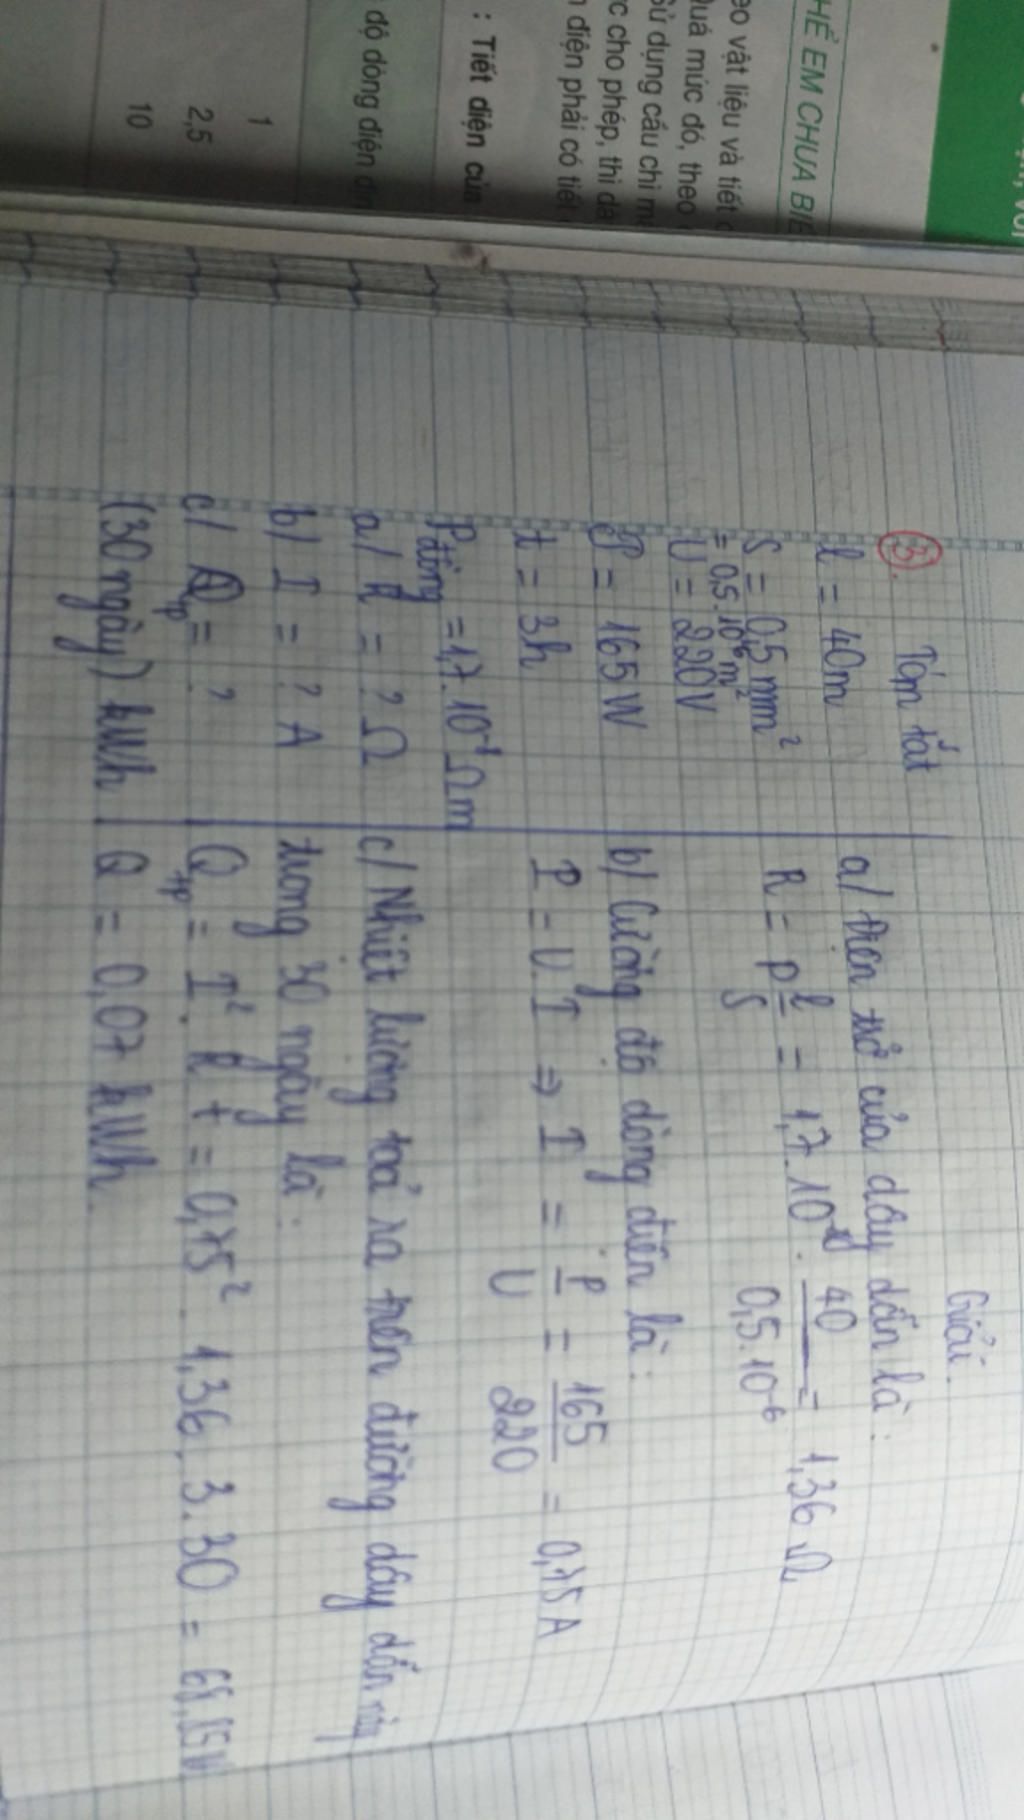 HỂ EM CHƯA BIẾ
eo vật liệu và tiết
quá mức đó, theo
sử dụng cầu chì m
c cho phép, thì dâ
n điện phải có tiết
: Tiết diện của
độ dòng điện đị
1
2,5
10
3. Tóm tắt
l = 40m
S = 0,5 mm²
= 0,5.10⁻⁶ m²
U = 220V
P = 165W
t = 3h
ρđồng = 1,7.10⁻⁸ Ωm
a/ R = ? Ω
b/ I = ? A
c/ Qtp = ?
(30 ngày) kWh
Giải.
a/ Điện trở của dây dẫn là:
R = ρ l/S = 1,7.10⁻⁸ . 40/0,5.10⁻⁶ = 1,36 Ω
b/ Cường độ dòng điện là:
P = U.I ⇒ I = P/U = 165/220 = 0,75A
c/ Nhiệt lượng toả ra trên đường dây dẫn này
trong 30 ngày là:
Qtp = I². R t = 0,75² . 1,36. 3.30 = 68,85W
Q = 0,07 kWh.